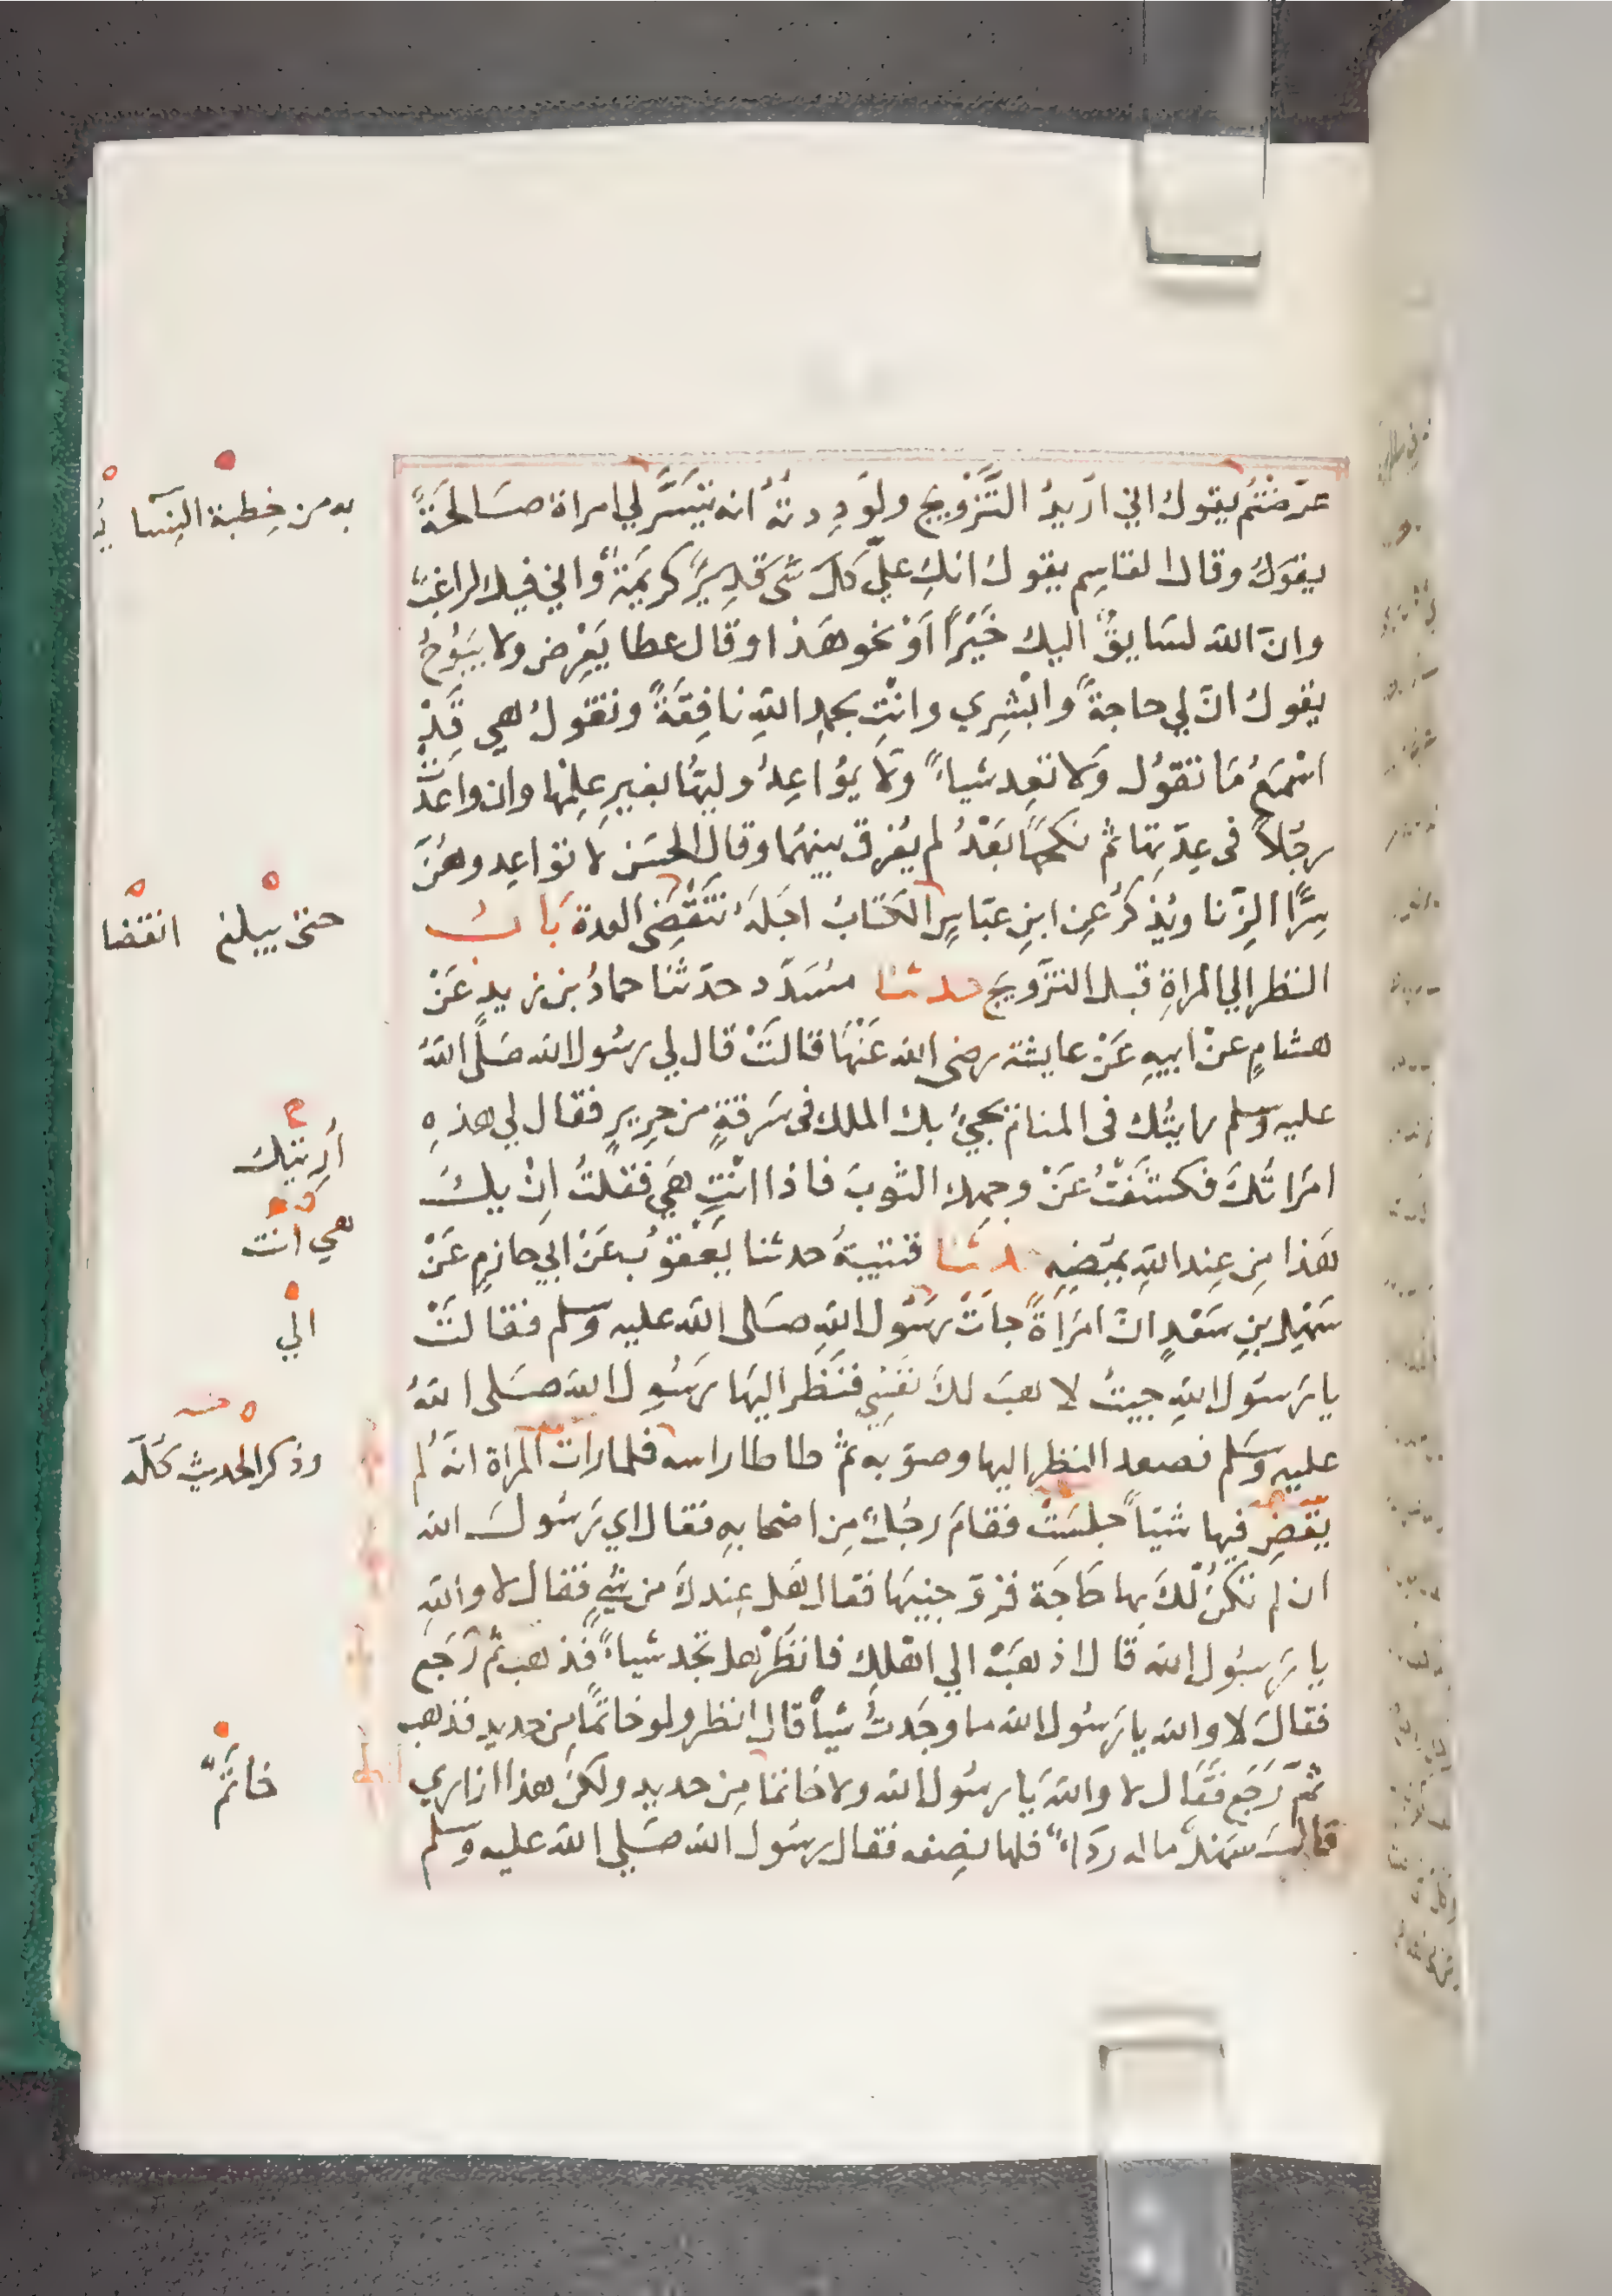 عرضتم يقول اني اريد التزويج ولوددت انه تيسر لي امراة صالحة
يقول وقال القاسم يقول انك علي كريمة واني فيك لراغب
وان الله لسايق اليك خيرا او نحو هذا وقال عطا يعرض ولا يبوح
يقول ان لي حاجة وابشري وانت بحمد الله نافقة وتقول هي قد
اسمع ما تقول ولا تعد شياء ولا يواعد وليها بغير علمها وان واعدت
رجلا في عدتها ثم نكحها بعد لم يفرق بينهما وقال الحسن لا تواعدوهن
سرا الزنا ويذكر عن ابن عباس الكتاب اجله تنقضي العدة باب
النظر الي المراة قبل التزويج حدثنا مسدد حدثنا حماد بن زيد عن
هشام عن ابيه عن عايشة رضي الله عنها قالت قال لي رسول الله صلى الله
عليه وسلم رايتك في المنام يجئ بك الملك في سرقة من حرير فقال لي هذه
امراتك فكشفت عن وجهك الثوب فاذا انت هي فقلت ان يك
هذا من عند الله يمضه حدثنا قتيبة حدثنا يعقوب عن ابي حازم عن
سهل بن سعد ان امراة جات رسول الله صلى الله عليه وسلم فقالت
يا رسول الله جيت لاهب لك نفسي فنظر اليها رسول الله صلى الله
عليه وسلم فصعد النظر اليها وصوبه ثم طاطا راسه فلما رات المراة انه لم
يقض فيها شيا جلست فقام رجل من اصحابه فقال اي رسول الله
ان لم تكن لك بها حاجة فزوجنيها فقال هل عندك من شي فقال لا والله
يا رسول الله قال اذهب الي اهلك فانظر هل تجد شياء فذهب ثم رجع
فقال لا والله يا رسول الله ما وجدت شيا قال انظر ولو خاتما من حديد فذهب
ثم رجع فقال لا والله يا رسول الله ولا خاتما من حديد ولكن هذا ازاري
قال سهل ما له رداء فلها نصفه فقال رسول الله صلى الله عليه وسلم
به من خطبة النسا
حتى يبلغ انقضا
أريتك
هي انت
الي
وذكر الحديث كله
خاتم